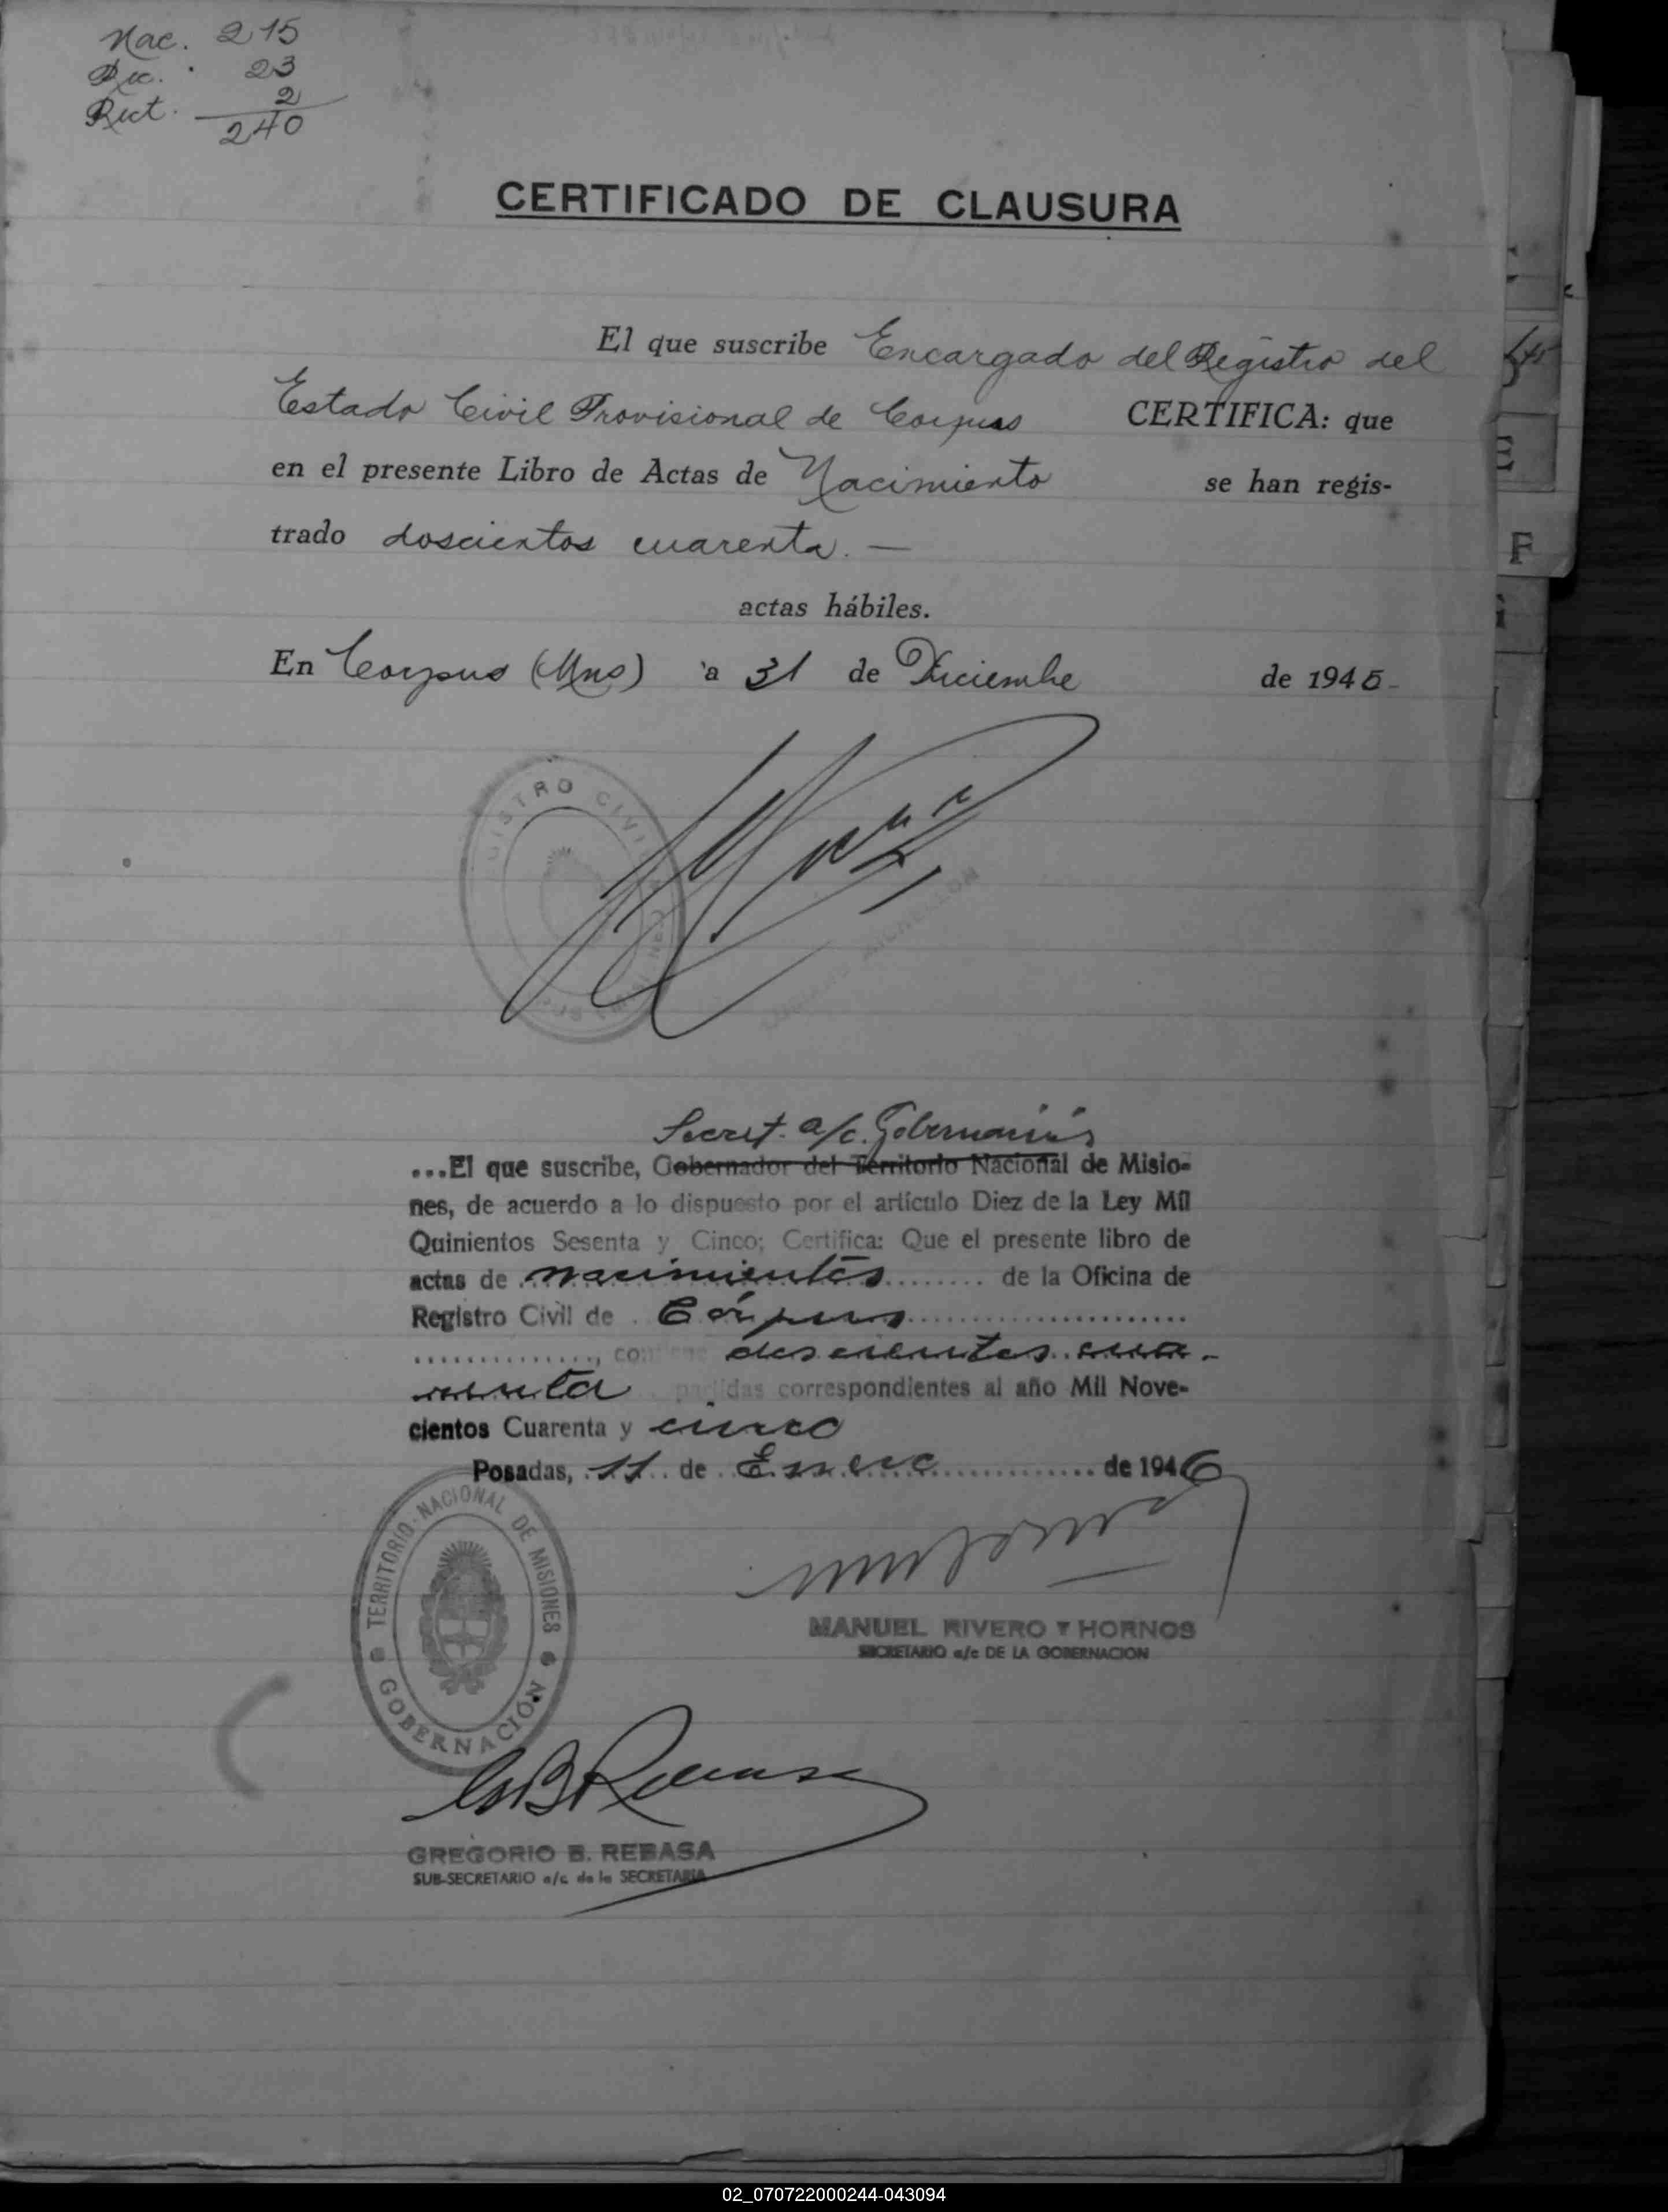 Nac. 215
Rec. 23
Rect. 2
240
CERTIFICADO DE CLAUSURA
El que suscribe Encargado del Registro del
Estado Civil Provisional de Corpus CERTIFICA: que
en el presente Libro de Actas de Nacimiento se han regis-
trado doscientos cuarenta. —
actas hábiles.
En Corpus (Mns) a 31 de Diciembre de 1945-
F
Secret. a/c. Gobernación
...El que suscribe, Gobernador del Territorio Nacional de Misio-
nes, de acuerdo a lo dispuesto por el artículo Diez de la Ley Mil
Quinientos Sesenta y Cinco; Certifica: Que el presente libro de
actas de nacimientos de la Oficina de
Registro Civil de Córpus
, contiene doscientos cua-
renta partidas correspondientes al año Mil Nove-
cientos Cuarenta y cinco
Posadas, 11 de Enero de 1946
TERRITORIO NACIONAL DE MISIONES
GOBERNACIÓN
MANUEL RIVERO Y HORNOS
SECRETARIO a/c DE LA GOBERNACION
GREGORIO B. REBASA
SUB-SECRETARIO a/c de la SECRETARIA
02_070722000244-043094